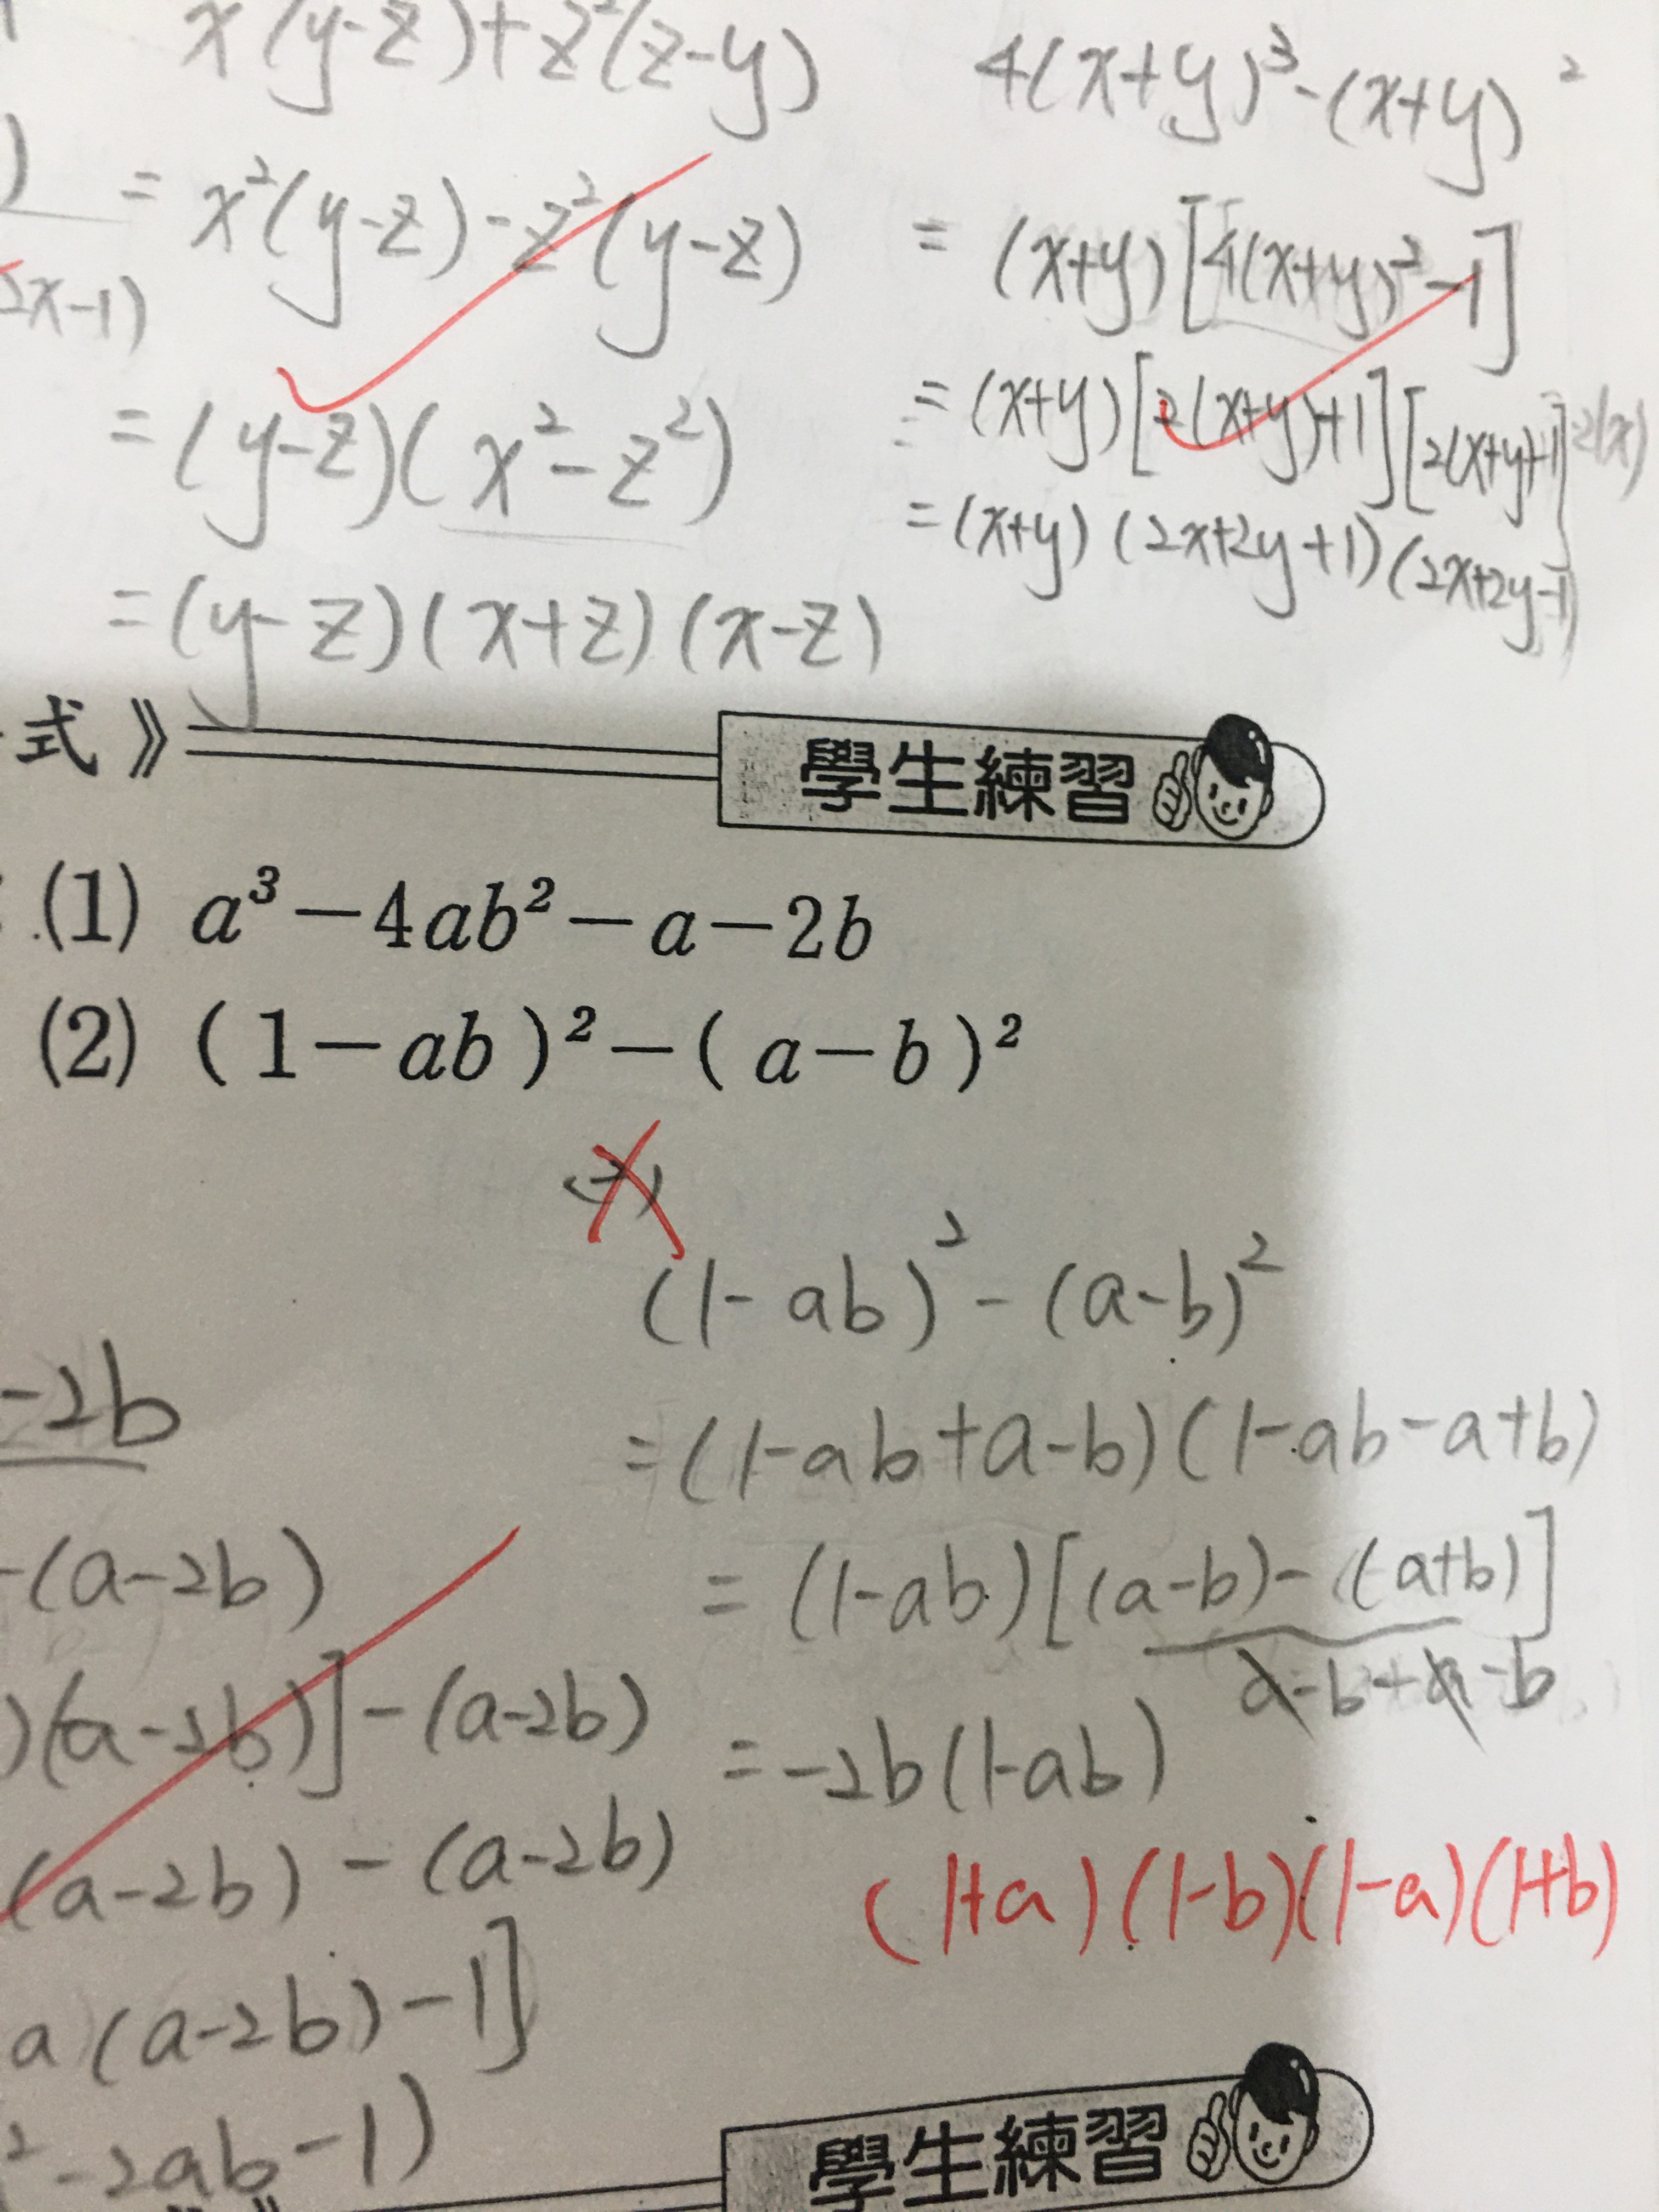 x(y-z)+z²(z-y)
=x²(y-z)-z²(y-z)
=(y-z)(x²-z²)
=(y-z)(x+z)(x-z)
2x-1)
4(x+y)³-(x+y)
=(x+y)[4(x+y)²-1]
=(x+y)[2(x+y)+1][2(x+y)+1] 2(x)
=(x+y)(2x+2y+1)(2x+2y-1)
式》
學生練習
(1) a³-4ab²-a-2b
(2) (1-ab)²-(a-b)²
-2b
-(a-2b)
)(a-2b)]-(a-2b)
(a-2b)-(a-2b)
a(a-2b)-1]
²-2ab-1)
(1-ab)²-(a-b)²
=(1-ab+a-b)(1-ab-a+b)
=(1-ab)[(a-b)-(a+b)]
a-b+a-b
=-2b(1-ab)
(1+a)(1-b)(1-a)(1+b)
學生練習